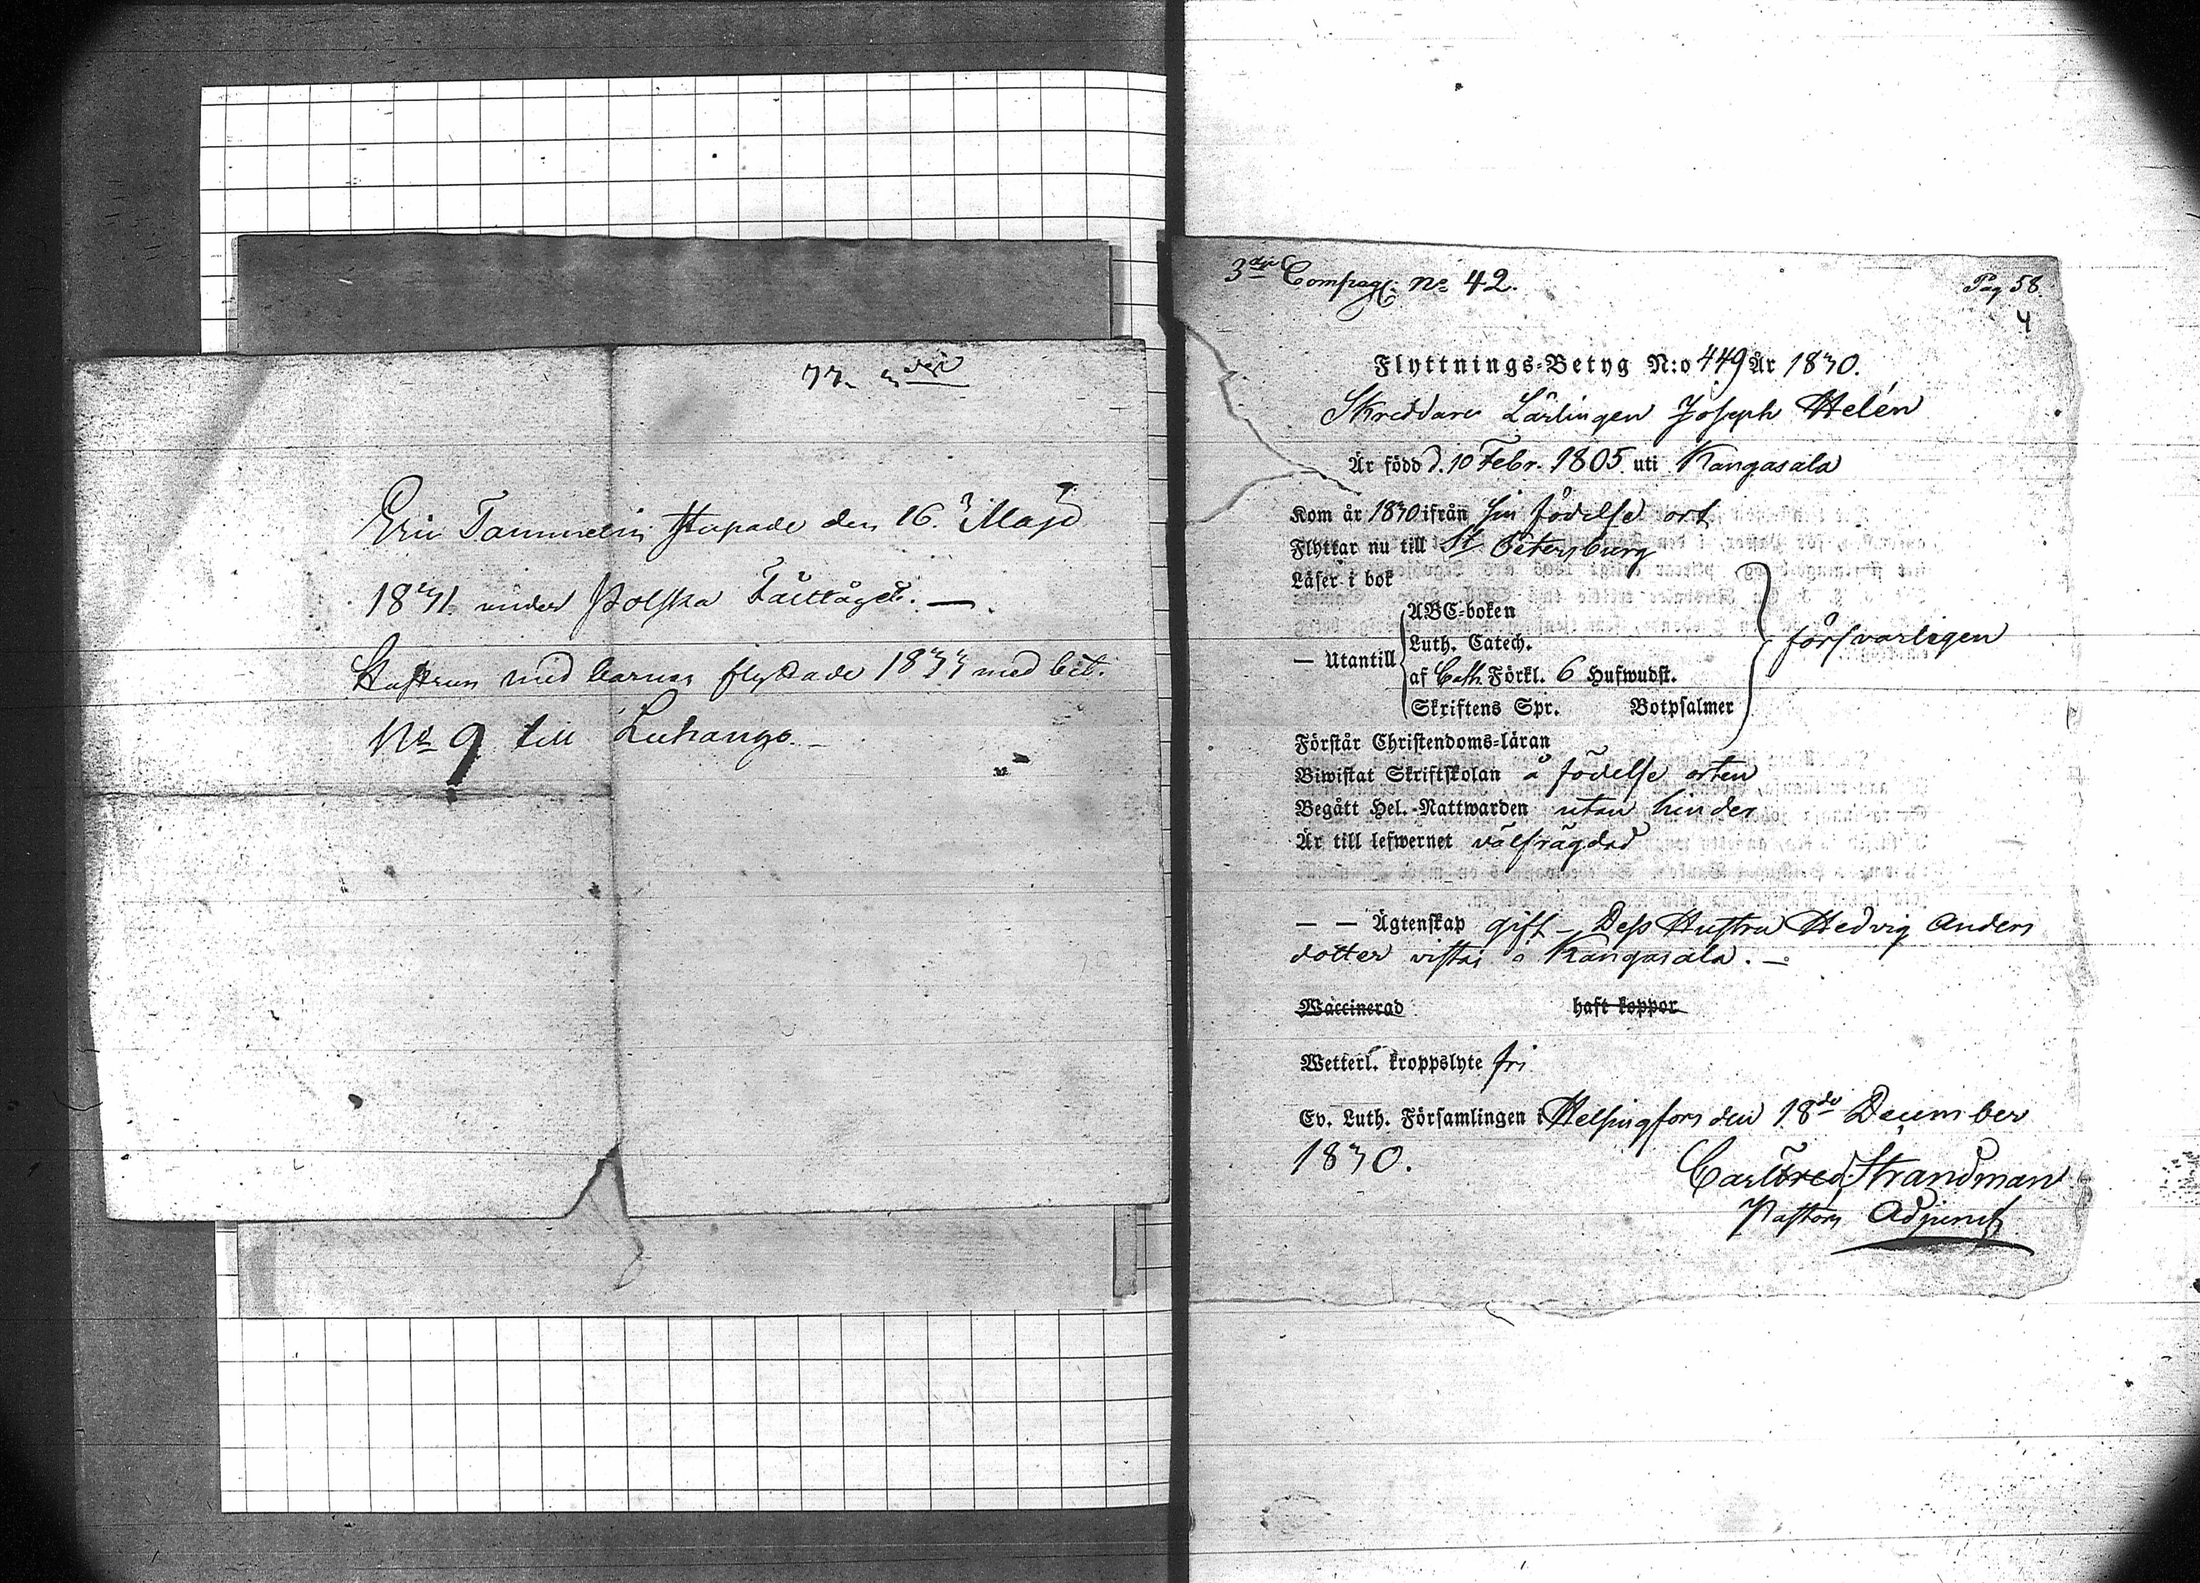 77.
Eric Tammelin stupade den 16. Maji
1831. under Polska Fälttåget. —
Hustrun med barnen flyttade 1833 med bet.
No 9 till Luhango. —
3dje Compag: No 42.
Pag 58.
4
Flyttnings-Betyg N:o 449 År 1830.
Skreddare Lärlingen Joseph Helén
Är född d. 10 Febr. 1805 uti Kangasala
Kom år 1830 ifrån sin födelse ort
Flyttar nu till St Petersburg
Läser i bok
ABC-boken
Luth. Catech.
— Utantill
af Förkl. 6 Hufwudst.
Skriftens Spr. Botpsalmer
försvarligen
Förstår Christendoms-läran
Biwistat Skriftskolan å födelse orten
Begått Hel. Nattwarden utan hinder
Är till lefwernet välfrägdad
— — Ägtenskap gift — Dess Hustru Hedvig Anders
dotter vistas i Kangasala. —
Waccinerad haft koppor
Wetterl. kroppslyte fri
Ev. Luth. Församlingen i Helsingfors den 18de December
1830.
Carl Fred. Strandman
Pastors Adjunct